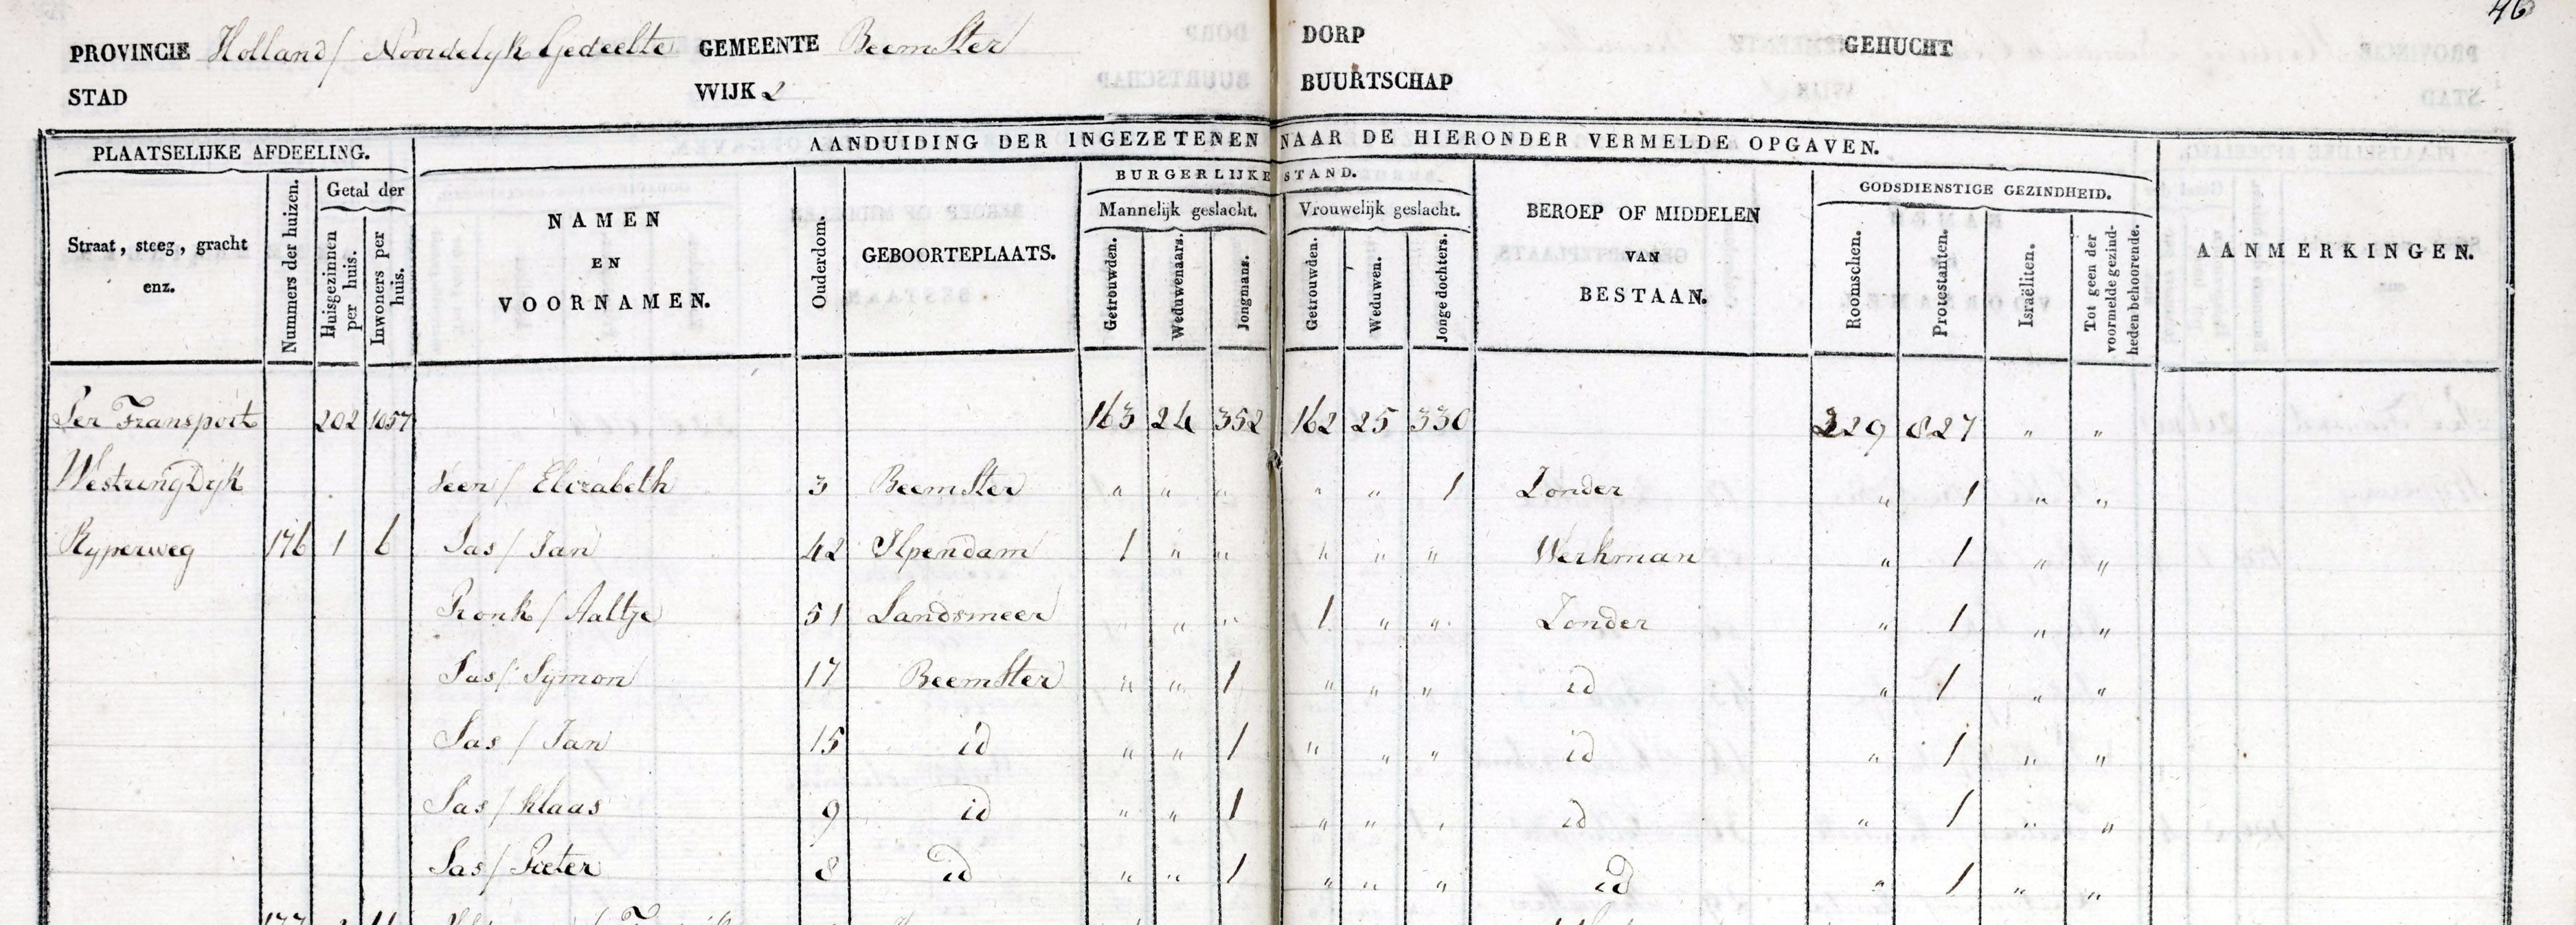 46
PROVINCIE Holland / Noordelyk Gedeelte GEMEENTE Beemster DORP GEHUCHT
STAD WIJK 2 BUURTSCHAP
AANDUIDING DER INGEZETENEN NAAR DE HIERONDER VERMELDE OPGAVEN.
PLAATSELIJKE AFDEELING.
BURGERLIJKE STAND.
GODSDIENSTIGE GEZINDHEID.
Straat, steeg, gracht enz.
Nummers der huizen.
Getal der
Huisgezinnen per huis.
Inwoners per huis.
NAMEN
EN
VOORNAMEN.
Ouderdom.
GEBOORTEPLAATS.
Mannelijk geslacht.
Getrouwden.
Weduwenaars.
Jongmans.
Vrouwelijk geslacht.
Getrouwden.
Weduwen.
Jonge dochters.
BEROEP OF MIDDELEN
VAN
BESTAAN.
Roomschen.
Protestanten.
Israëliten.
Tot geen der voormelde gezindheden behoorende.
AANMERKINGEN.
Per Transport 202 1057 163 24 352 162 25 330 229 827 " "
WestringDyk Veen / Elizabeth 3 Beemster " " " " " 1 Zonder " 1 " "
Ryperweg 176 1 6 Sas / Jan 42 Ilpendam 1 " " " " " Werkman " 1 " "
Pronk / Aaltje 51 Landsmeer " " " 1 " " Zonder " 1 " "
Sas / Symon 17 Beemster " " 1 " " " id " 1 " "
Sas / Jan 15 id " " 1 " " " id " 1 " "
Sas / Klaas 9 id " " 1 " " " id " 1 " "
Sas / Pieter 8 id " " 1 " " " id " 1 " "